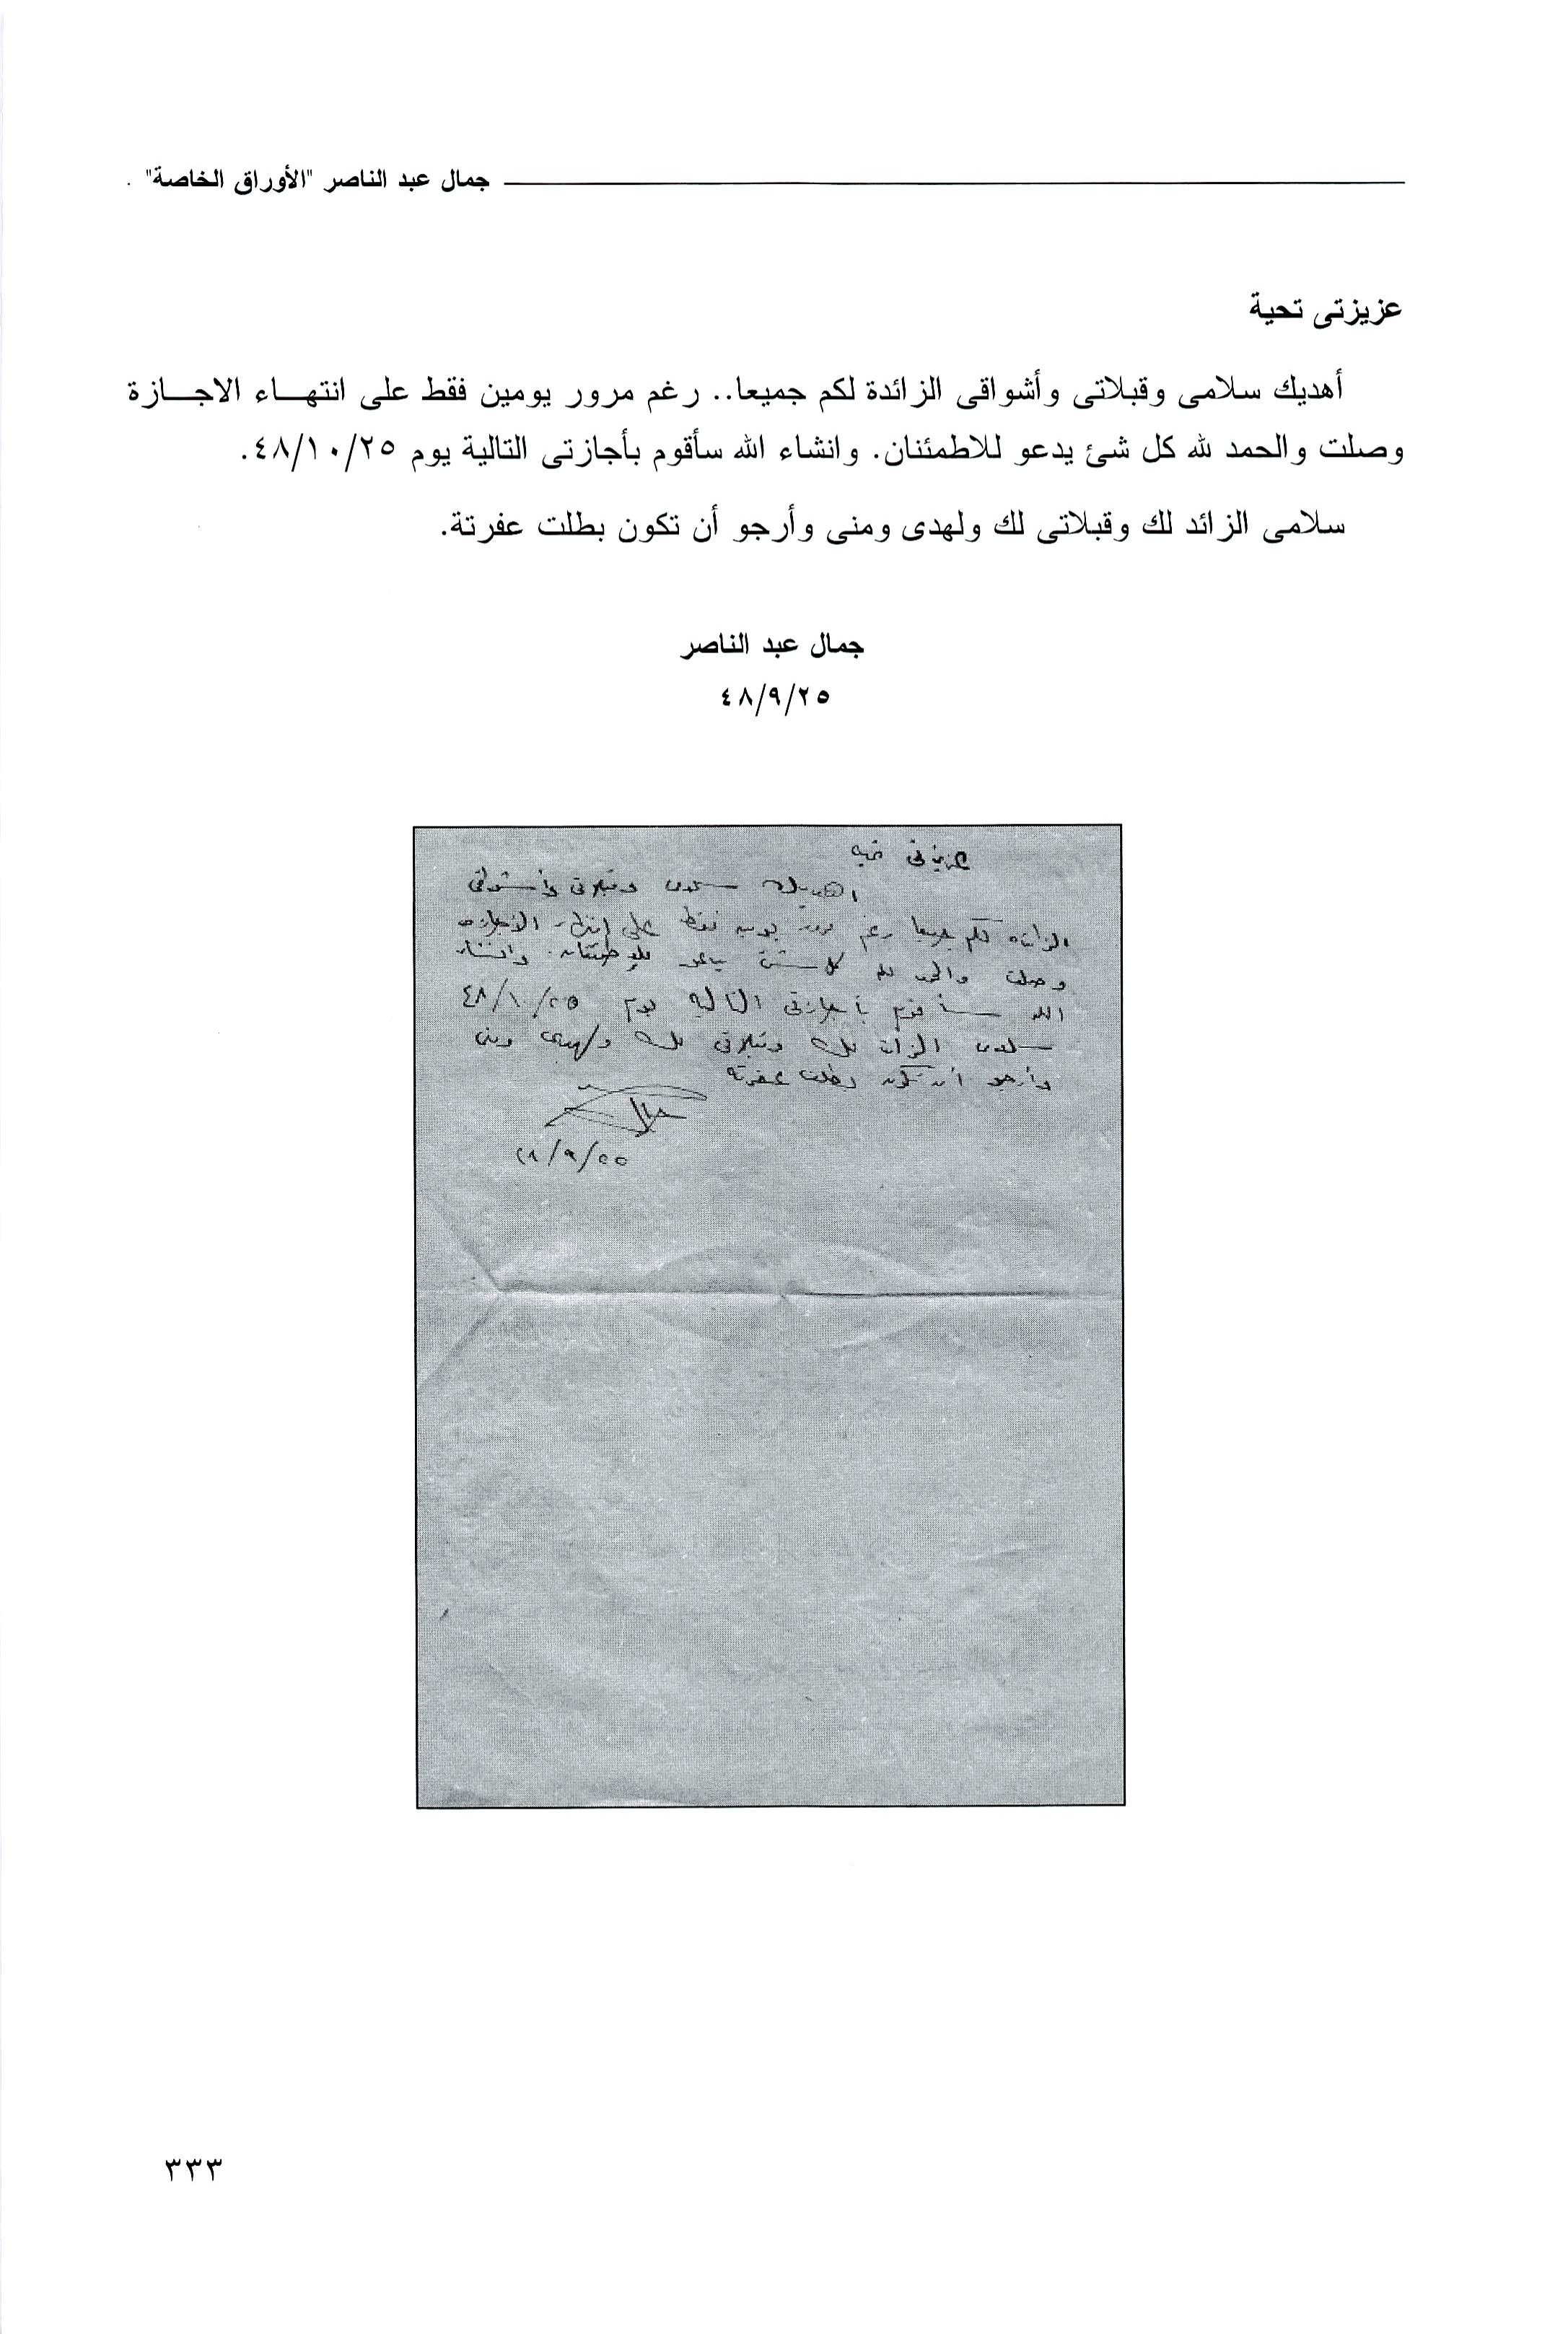 جمال عبد الناصر "الأوراق الخاصة" .
عزيزتى تحية
أهديك سلامى وقبلاتى وأشواقى الزائدة لكم جميعا.. رغم مرور يومين فقط على انتهـــاء الاجــازة
وصلت والحمد لله كل شئ يدعو للاطمئنان. وانشاء الله سأقوم بأجازتى التالية يوم ٤٨/١٠/٢٥.
سلامى الزائد لك وقبلاتى لك ولهدى ومنى وأرجو أن تكون بطلت عفرتة.
جمال عبد الناصر
٤٨/٩/٢٥
عزيزتى تحيه
اهديك سلامى وقبلاتى وأشواقى
الزائده لكم جميعا رغم مرور يومين فقط على انتهاء الأجازه
وصلت والحمد لله كل شئ يدعو للإطمئنان. وانشاء
الله سأقوم بأجازتى التاليه يوم ٤٨/١٠/٢٥
سلامى الزائد لك وقبلاتى لك ولهدى ومنى
وأرجو أن تكون بطلت عفرته
جمال
٤٨/٩/٢٥
٣٣٣